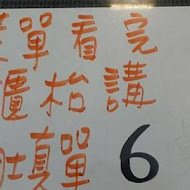 單看完
櫃枱講
真單 6